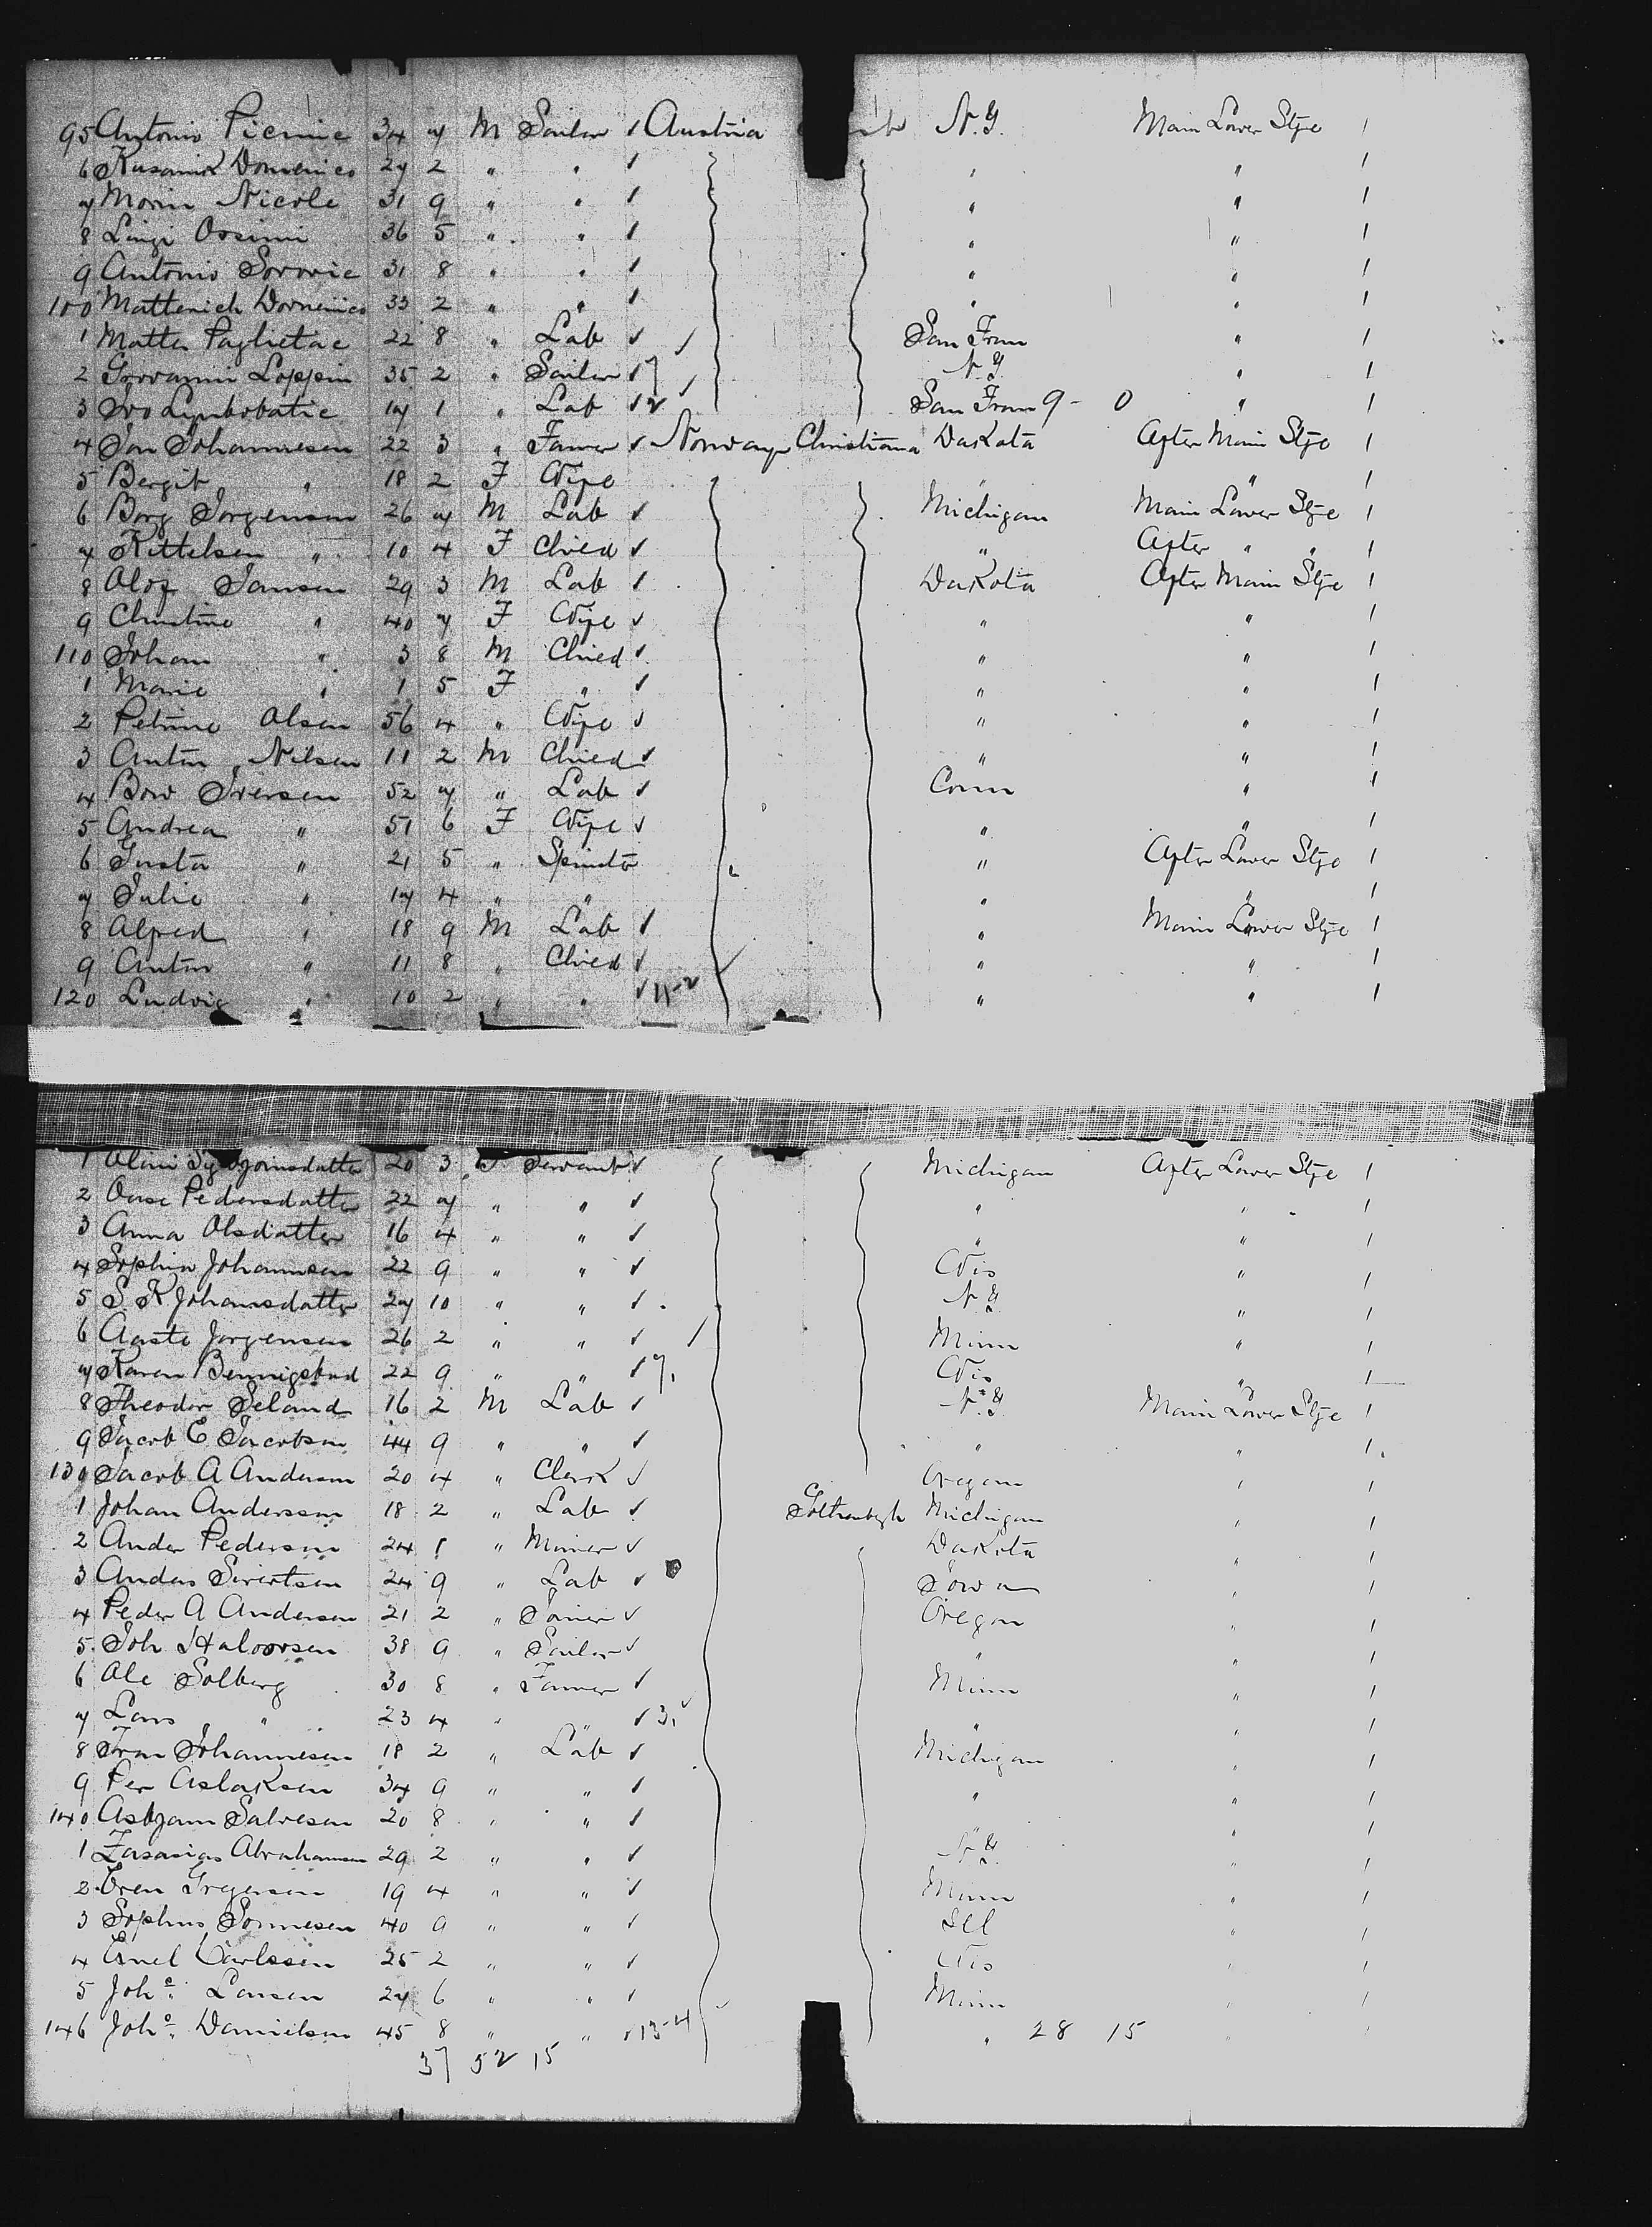 95 Antonio Picinic 34 7 M Sailor Austria N.Y. Main Lower Stge 1
6 Kusanik Domenico 27 2 " " " " 1
7 Morin Nicole 31 9 " " " " 1
8 Luigi Orsini 36 5 " " " " 1
9 Antonio Sorovic 31 8 " " " " 1
100 Mattenich Domenico 33 2 " " " " 1
1 Matteo Paglietac 22 8 " Lab San Fran " 1
2 Giovanni Loppin 35 2 " Sailor 7 N.Y. " 1
3 Ivo Lynbobatic 17 1 " Lab 2 San Fran 9 - 0 " 1
4 Jan Johannesen 22 3 " Farmer Norway Christiana Dakota After Main Stge 1
5 Bergit " 18 2 F Wife " " 1
6 Borg Jorgenson 26 7 M Lab Michigan Main Lower Stge 1
7 Kittelsen " 10 4 F Chied " After " " 1
8 Alof Jansen 29 3 M Lab Dakota After Main Stge 1
9 Christine " 40 7 F Wife " " 1
110 Johan " 3 8 M Chied " " 1
1 Marie " 1 5 F " " " 1
2 Petrine Olsen 56 4 " Wife " " 1
3 Anton Nilsen 11 2 M Chied " " 1
4 Bow Iversen 52 7 " Lab Conn " 1
5 Andrea " 51 6 F Wife " " 1
6 Gusta " 21 5 " Spinster " After Lower Stge 1
7 Julie " 17 4 " " " " 1
8 Alfred " 18 9 M Lab " Main Lower Stge 1
9 Anton " 11 8 " Chied " " 1
120 Ludvig " 10 2 " " 11-2 " " 1
1 20 3 F Servant Michigan After Lower Stge 1
2 Aase Pedersdatter 22 7 " " " " 1
3 Anna Olsdatter 16 4 " " " " 1
4 Sophia Johannsen 22 9 " " Wis " 1
5 S. K Johansdatter 27 10 " " N.Y. " 1
6 Aaste Jorgensen 26 2 " " Minn " 1
7 Karen Bennigstad 22 9 " " 7 Wis " 1
8 Theodor Seland 16 2 M Lab N.Y. Main Lower Stge 1
9 Jacob E Jacobsen 44 9 " " " " 1
130 Jacob A Anderson 20 4 " Clerk Oregon " 1
1 Johan Andersson 18 2 " Lab Gothenbgh Michigan " 1
2 Ander Pederson 24 1 " Miner Dakota " 1
3 Anders Sivertsen 24 9 " Lab Iowa " 1
4 Peder A Andersen 21 2 " Joiner Oregon " 1
5 Joh Halvorsen 38 9 " Sailor " " 1
6 Ole Solberg 30 8 " Farmer Minn " 1
7 Lars " 23 4 " " 3 " " 1
8 Johannesen 18 2 " Lab Michigan " 1
9 Per Aslaksen 34 9 " " " " 1
140 Asbjorn Salvesen 20 8 " " " " 1
1 Zasarias Abrahamsen 29 2 " " N.Y. " 1
2 Oren Gregersen 19 4 " " Minn " 1
3 Sophus Sonnesen 40 9 " " Ill " 1
4 Emel Carlssen 25 2 " " Wis " 1
5 Joh.ͤ Larsen 27 6 " " Minn " 1
146 Joh.ͤ Danielsen 45 8 " " 13-4 " 28 15 " 1
37 52 15